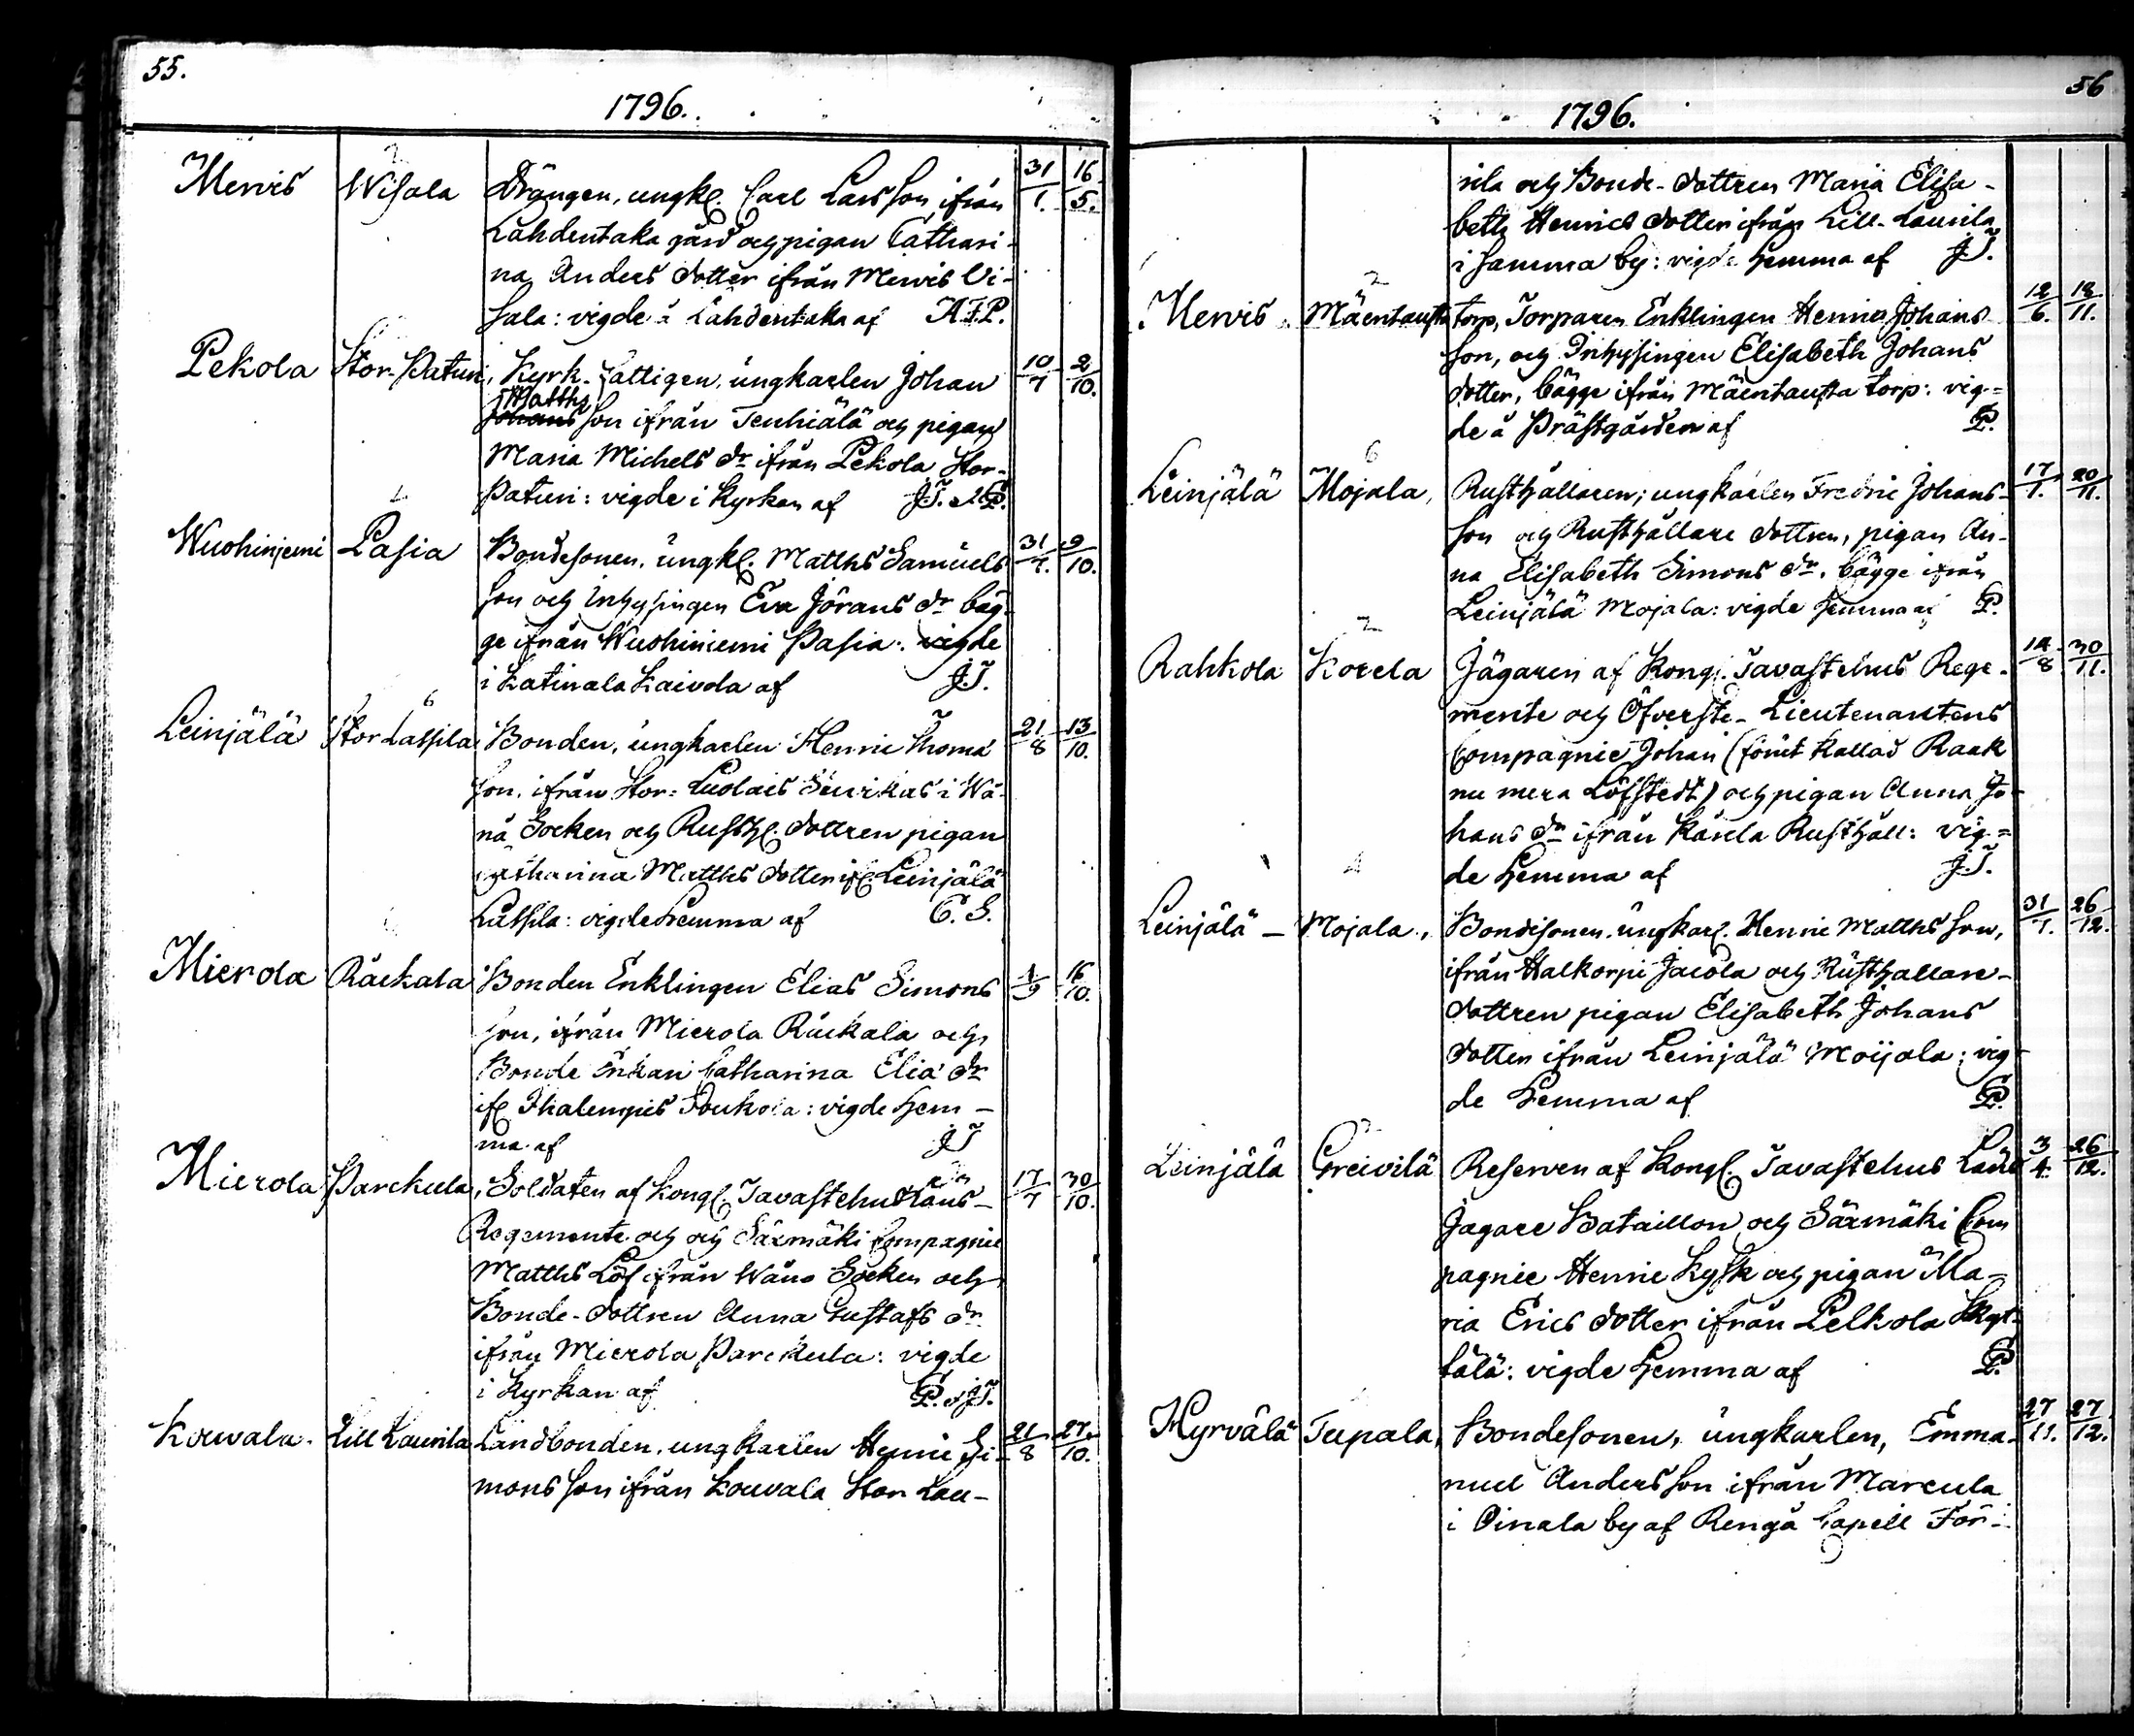 55.
1796.
Mervis Wisala Drängen, ungkl. Carl Larsson ifrån 31/1. 16/5.
Lahdentaka gård och pigan Cathari-
na Anders dotter ifrån Mervis Vi-
sala: vigde å Lahdentaka af A.F.P.
Pekola Stor-Paturi, Kyrk-fattigen, ungkarlen Johan 10/7 2/10.
Matths
Johans son ifrån Tenhiälä och pigan
Maria Michels dr ifrån Pekola Stor-
Paturi: vigde i Kyrkan af J.T. P.
Wuohiniemi Pasia Bondesonen, ungkl. Matths Samuels 31/7. 9/10.
son och Inhysingen Eva Jörans dr båg-
ge ifrån Wuohiniemi Pasia: vigde
i Katinala Kaivola af J.T.
Leinjälä Stor Laspila Bonden, ungkarlen Henric Thoma 21/8 13/10.
son, ifrån Stor-Luolais i Wå-
nå Socken och Rusth. dottren pigan
Catharina Matths dotter ifr. Leinjälä
: vigde hemma af C. G.
Mierola Räckala Bonden Enklingen Elias Simons 4/9 16/10.
son, ifrån Mierola Räckala och
Bonde Enkan Catharina Elia dr
ifr. Ihalempis : vigde hem-
ma af J.T
Mierola Parckula, Soldaten af Kongl. Tavastehus Läns- 17/7 30/10.
Regemente och och Särmäki Compagnie
Matths Löf ifrån Wånå Socken och
Bonde-dottren Anna Gustafs dr
ifrån Mierola Parckula: vigde
i Kyrkan af P. J.T.
Kouvala. Lill Laurila Landbonden, ungkarlen Henric Si- 21/8 27/10.
mons son ifrån Kouvala Stor Lau-
56
1796.
rila och Bonde-dottren Maria Elisa-
beth Henrics dotter ifrån Lill-Laurila
i samma by: vigde hemma af J.T.
Mervis. Mäentausta torp, Torparen Enklingen Henric Johans- 12/6. 18/11.
son, och Inhysingen Elisabeth Johans
dotter, bägge ifrån Mäentausta torp: vig=
de å Prästgården af P.
Leinjälä Mojala, Rusthållaren, ungkarlen Fredric Johans- 17/1. 20/11.
son och Rusthållare dottren, pigan An-
na Elisabeth Simons dr. bägge ifrån
Leinjälä Mojala: vigde hemma af P.
Rahkola Korela Jägaren af Kongl. Tavastehus Rege- 14/8 30/11.
mente och Öfverste-Lieutenantens
Compagnie Johan (förut kallad Raak
nu mera Löfstedt) och pigan Anna Jo-
hans dr ifrån Kårela Rusthåll: vig=
de hemma af J.T.
Leinjälä - Mojala., Bondesonen, ungkarl. Henric Matths son, 31/7. 26/12.
ifrån Halkorpi Jacola och Rusthållare-
dottren pigan Elisabeth Johans
dotter ifrån Leinjälä Moijala: vig-
de hemma af P.
Leinjälä Greivilä Reserven af Kongl. Tavastehus Läns 3/4. 26/12.
Jägare Bataillon och Särmäki Com
pagnie Henric Kysk och pigan Ma-
ria Erics dotter ifrån Pelkola Skyt-
tälä: vigde hemma af P.
Hyrvälä Tupala, Bondesonen, ungkarlen, Emma- 27/11. 27/12.
nuel Anders son ifrån Marcula
i Oinala by af Rengå Capell För-